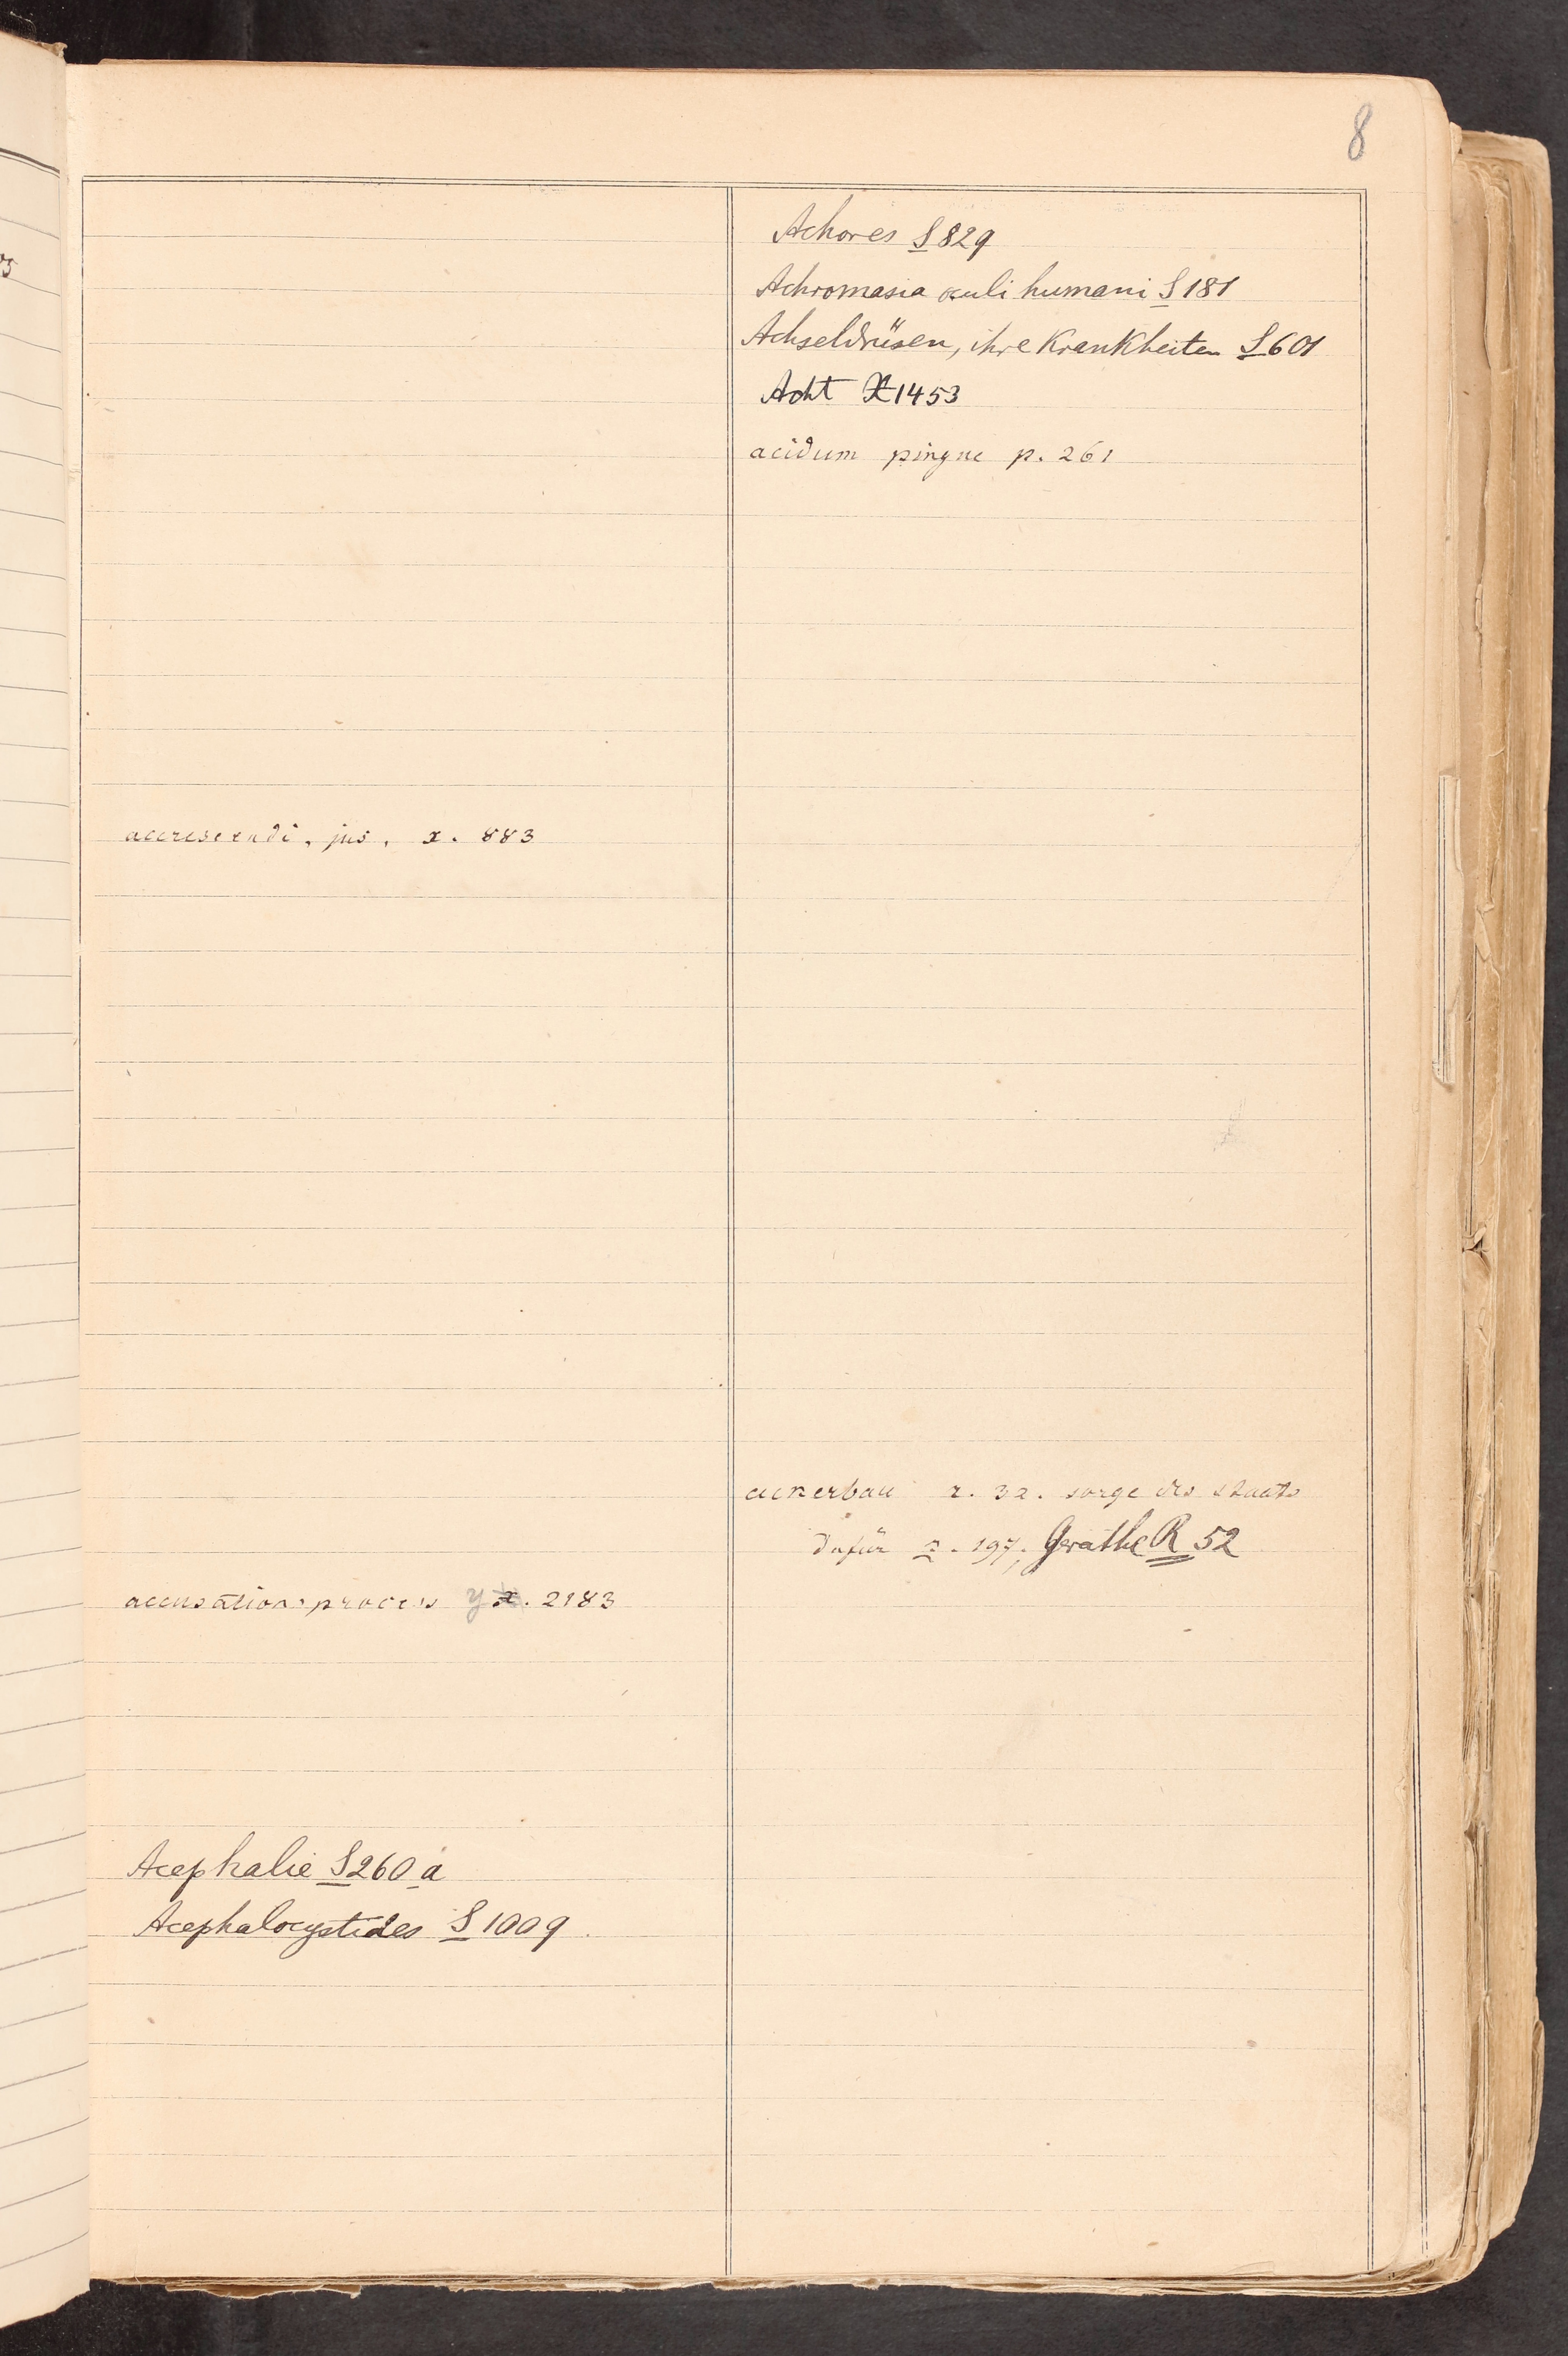 8
accrescendi, jus, x. 883
accusationsprocess y x. 2183
Acephalie S260a
Acephalocystides S 1009
Achores S 829
Achromasia oculi humani S 181
Achseldrüsen, ihre Krankheiten S 601
Acht X 1453
acidum pingue p. 261
ackerbau r. 32. sorge des staats
dafür r. 197; Geräthe R 52